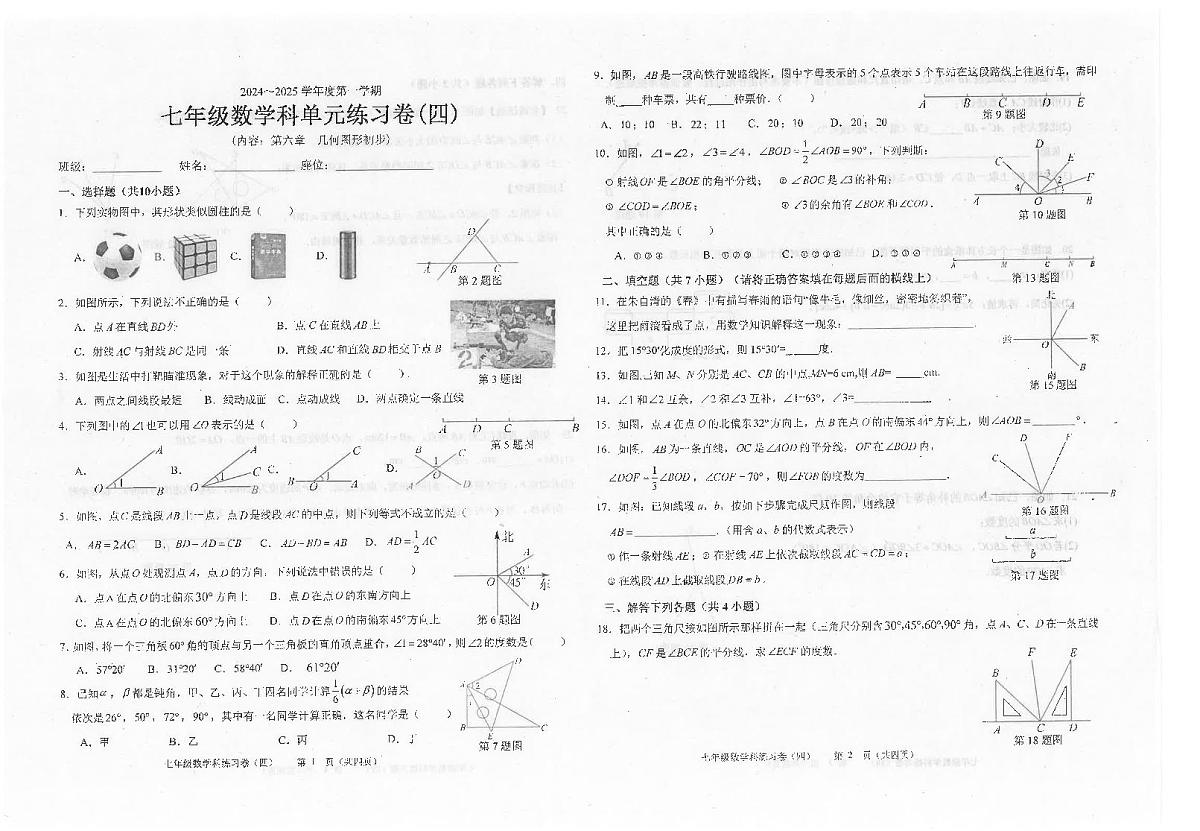 2024~2025学年度第一学期
七年级数学科单元练习卷(四)
(内容：第六章 几何图形初步)
班级： 姓名： 座位：
一、选择题（共10小题）
1. 下列实物图中，其形状类似圆柱的是（ ）
A. B. C. D.
D
A B C
第2题图
2. 如图所示，下列说法不正确的是（ ）
A. 点A在直线BD外 B. 点C在直线AB上
C. 射线AC与射线BC是同一条 D. 直线AC和直线BD相交于点B
第3题图
3. 如图是生活中打靶瞄准现象，对于这个现象的解释正确的是（ ）.
A. 两点之间线段最短 B. 线动成面 C. 点动成线 D. 两点确定一条直线
4. 下列图中的∠1也可以用∠O表示的是（ ）
A D C B
第5题图
A. B. C. D.
5. 如图，点C是线段AB上一点，点D是线段AC的中点，则下列等式不成立的是（ ）
A. AB=2AC B. BD−AD=CB C. AD−BD=AB D. AD=1/2AC
6. 如图，从点O处观测点A，点D的方向，下列说法中错误的是（ ）
A. 点A在点O的北偏东30°方向上 B. 点D在点O的东南方向上
C. 点A在点O的北偏东60°方向上 D. 点D在点O的南偏东45°方向上
北 A 30° 45° O 东 D
第6题图
7. 如图，将一个三角板60°角的顶点与另一个三角板的直角顶点重合，∠1=28°40′，则∠2的度数是（ ）
A. 57°20′ B. 31°20′ C. 58°40′ D. 61°20′
8. 已知α，β都是钝角，甲、乙、丙、丁四名同学计算1/6(α+β)的结果
依次是26°，50°，72°，90°，其中有一名同学计算正确，这名同学是（ ）
A. 甲 B. 乙 C. 丙 D. 丁
第7题图
七年级数学科练习卷（四） 第 1 页（共四页）
9. 如图，AB是一段高铁行驶路线图，图中字母表示的5个点表示5个车站在这段路线上往返行车，需印
制____种车票，共有____种票价.（ ）
A C B D E
第9题图
A. 10；10 B. 22；11 C. 20；10 D. 20；20
10. 如图，∠1=∠2，∠3=∠4，∠BOD=1/2∠AOB=90°，下列判断：
①射线OF是∠BOE的角平分线； ②∠BOC是∠3的补角；
③∠COD=∠BOE； ④∠3的余角有∠BOE和∠COD.
其中正确的是（ ）
第10题图
二、填空题（共7小题）（请将正确答案填在每题后面的横线上）
A M C N B
第13题图
11. 在朱自清的《春》中有描写春雨的语句“像牛毛，像细丝，密密地斜织着”，
这里把雨滴看成了点，用数学知识解释这一现象：____________.
12. 把15°30′化成度的形式，则15°30′=______度.
13. 如图，已知M、N分别是AC、CB的中点，MN=6 cm，则AB=____cm.
北 A 西 O 东 南 B
第15题图
14. ∠1和∠2互余，∠2和∠3互补，∠1=63°，∠3=____________
15. 如图，点A在点O的北偏东32°方向上，点B在点O的南偏东44°方向上，则∠AOB=________°.
16. 如图，AB为一条直线，OC是∠AOD的平分线，OE在∠BOD内，
∠DOE=1/3∠BOD，∠COE=70°，则∠EOB的度数为____________.
第16题图
17. 如图，已知线段a，b，按如下步骤完成尺规作图，则线段
AB=____________.（用含a、b的代数式表示）
①作一条射线AE；②在射线AE上依次截取线段AC=CD=a；
③在线段AD上截取线段DB=b.
a
b
第17题图
三、解答下列各题（共4小题）
18. 把两个三角尺按如图所示那样拼在一起（三角尺分别含30°,45°,60°,90°角，点A、C、D在一条直线
上），CF是∠BCE的平分线，求∠ECF的度数.
B F E
A C D
第18题图
七年级数学科练习卷（四） 第 2 页（共四页）